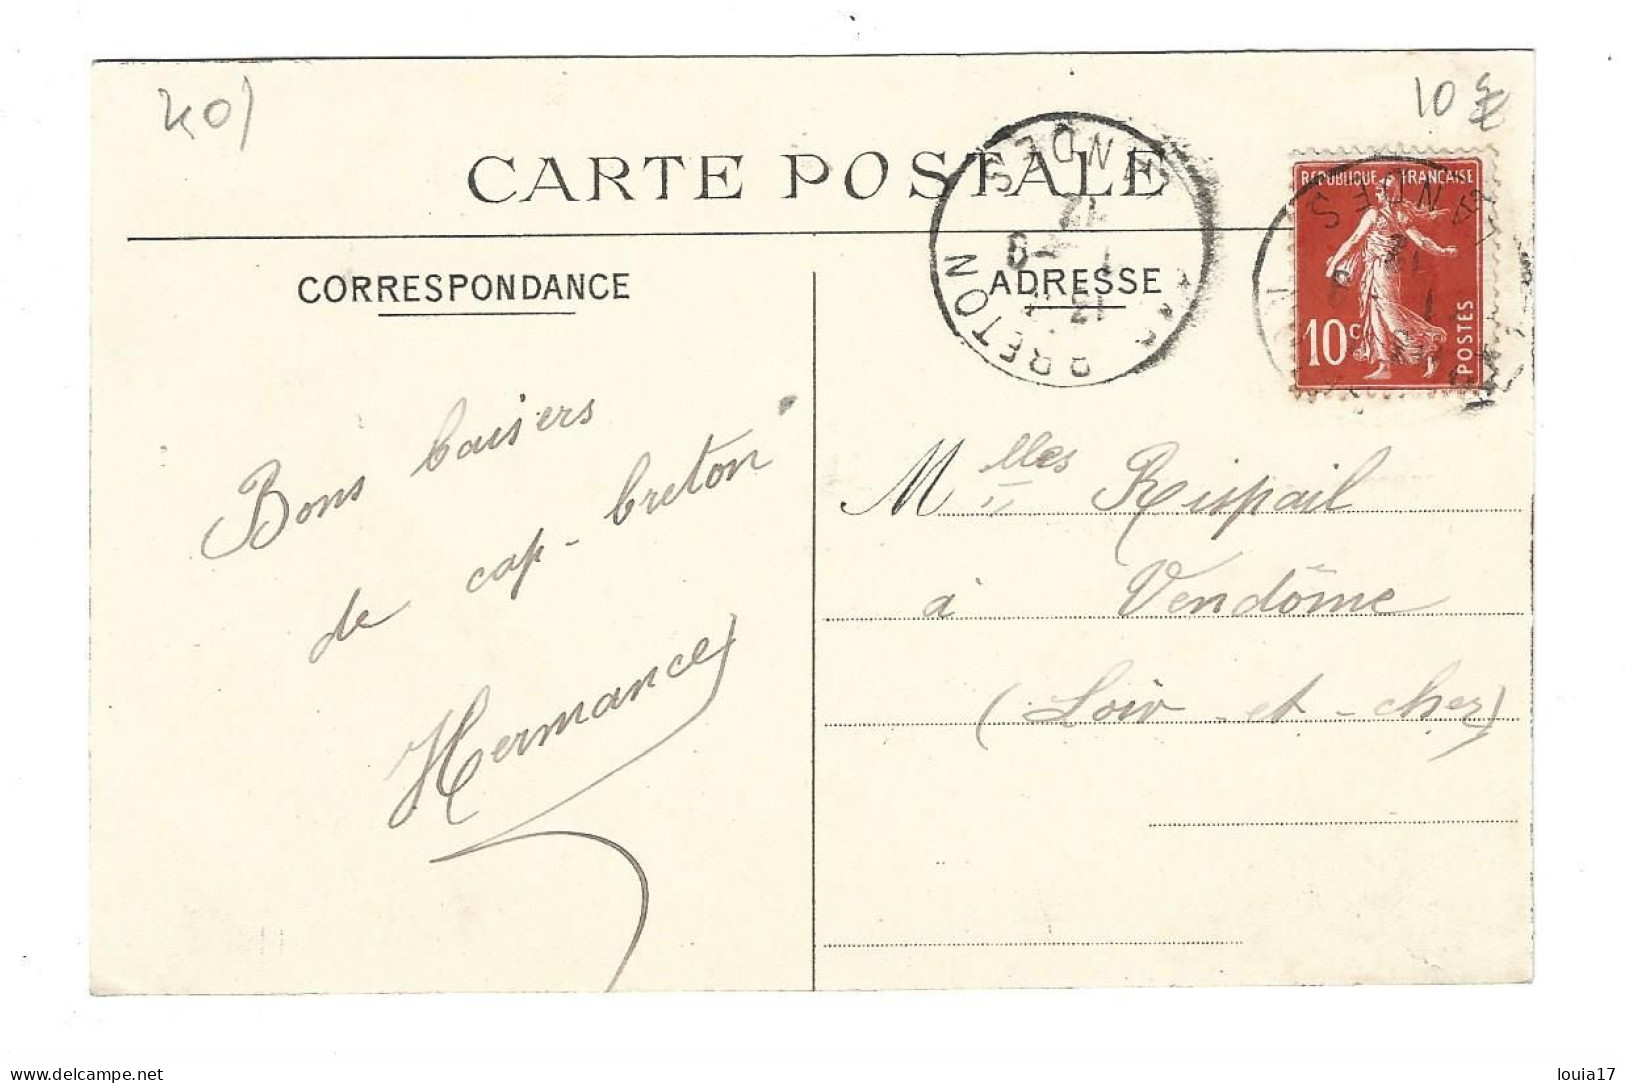 40)
10 €
CARTE POSTALE
LANDES
BRETON
REPUBLIQUE FRANÇAISE
LANDES
10c
POSTES
CORRESPONDANCE
ADRESSE
Bons baisers
de cap-breton
Hermance
Mlles Rispail
à Vendôme
(Loir-et-cher)
delcampe.net
louia17